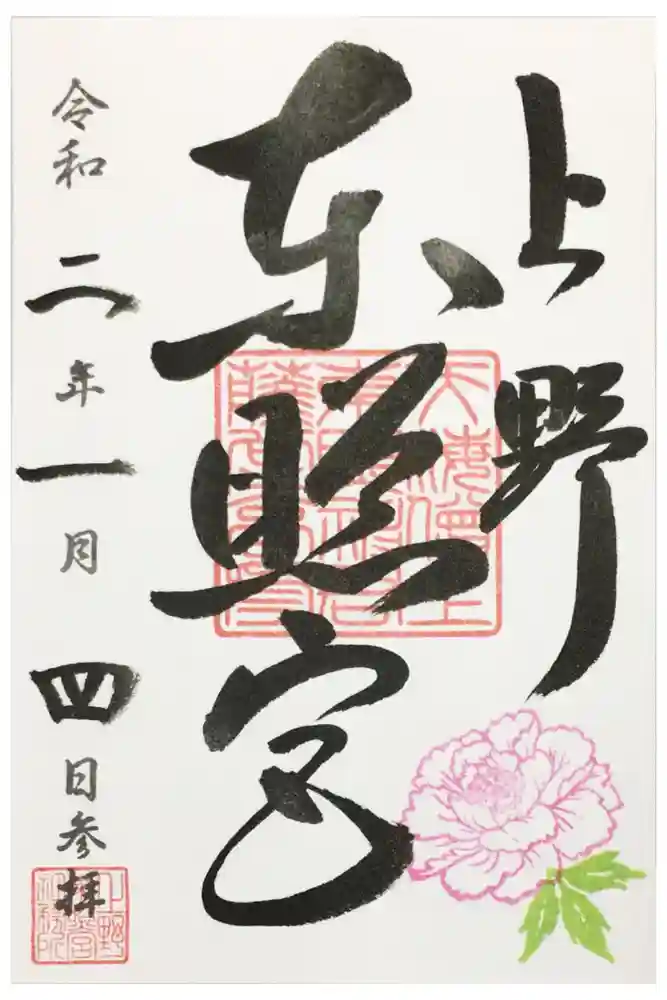 上野
東照宮
令和二年一月四日参拝